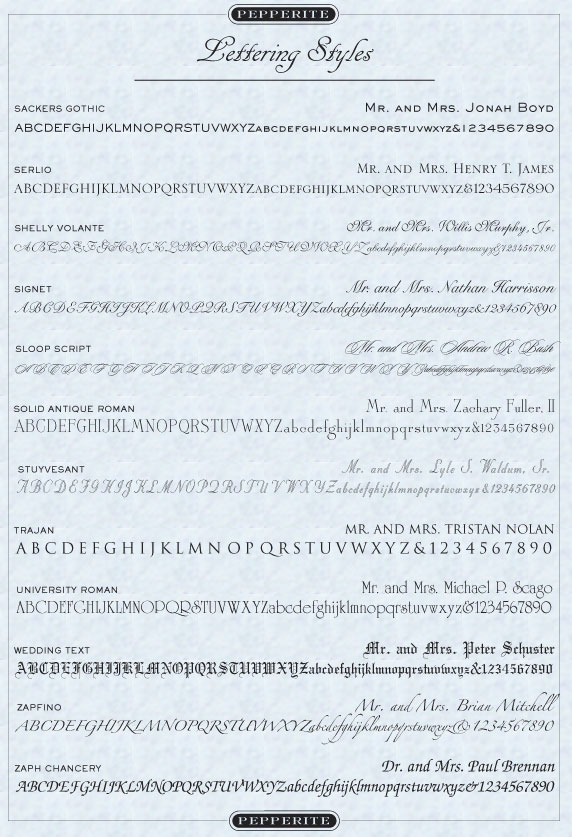 PEPPERITE
Lettering Styles
SACKERS GOTHIC Mr. and Mrs. Jonah Boyd
ABCDEFGHIJKLMNOPQRSTUVWXYZABCDEFGHIJKLMNOPQRSTUVWXYZ&1234567890
SERLIO Mr. and Mrs. Henry T. James
ABCDEFGHIJKLMNOPQRSTUVWXYZABCDEFGHIJKLMNOPQRSTUVWXYZ&1234567890
SHELLY VOLANTE Mr. and Mrs. Willis Murphy, Jr.
ABCDEFGHIJKLMNOPQRSTUVWXYZabcdefghijklmnopqrstuvwxyz&1234567890
SIGNET Mr. and Mrs. Nathan Harrisson
ABCDEFGHIJKLMNOPQRSTUVWXYZabcdefghijklmnopqrstuvwxyz&1234567890
SLOOP SCRIPT Mr. and Mrs. Andrew R. Bush
ABCDEFGHIJKLMNOPQRSTUVWXYZabcdefghijklmnopqrstuvwxyz&1234567890
SOLID ANTIQUE ROMAN Mr. and Mrs. Zachary Fuller, II
ABCDEFGHIJKLMNOPQRSTUVWXYZabcdefghijklmnopqrstuvwxyz&1234567890
STUYVESANT Mr. and Mrs. Lyle S. Waldum, Sr.
ABCDEFGHIJKLMNOPQRSTUVWXYZabcdefghijklmnopqrstuvwxyz&1234567890
TRAJAN MR. AND MRS. TRISTAN NOLAN
ABCDEFGHIJKLMNOPQRSTUVWXYZ&1234567890
UNIVERSITY ROMAN Mr. and Mrs. Michael P. Scago
ABCDEFGHIJKLMNOPQRSTUVWXYZabcdefghijklmnopqrstuvwxyz&1234567890
WEDDING TEXT Mr. and Mrs. Peter Schuster
ABCDEFGHIJKLMNOPQRSTUVWXYZabcdefghijklmnopqrstuvwxyz&1234567890
ZAPFINO Mr. and Mrs. Brian Mitchell
ABCDEFGHIJKLMNOPQRSTUVWXYZabcdefghijklmnopqrstuvwxyz&1234567890
ZAPH CHANCERY Dr. and Mrs. Paul Brennan
ABCDEFGHIJKLMNOPQRSTUVWXYZabcdefghijklmnopqrstuvwxyz&1234567890
PEPPERITE